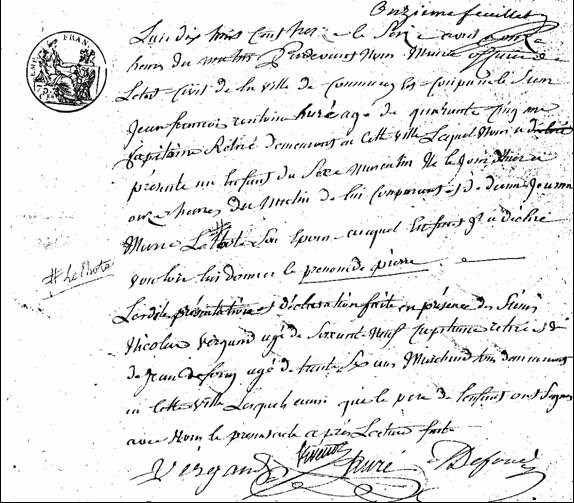 Onzieme feuillet
EMPIRE FRAN
L'an dix huit cent trois le Seize avril onze
heures du matin Pardevant Nous Maire officier de
L'etat Civil de la ville de Commercy Est Comparu le Sieur
Jean francois antoine huré agé de quarante Cinq ans
Capitaine Retiré demeurant en cette ville Lequel Nous a
présenté un Enfant du Sexe Masculin Né le Jour d'hier a
onze heures du Matin de lui Comparant et de dame Jeanne
Marie Le hote Son Epouse auquel Enfant Il a declaré
# Le hote
vouloir lui donner le prenom de pierre
Lesdites présentation et déclaration faite en présence des Sieurs
Nicolas Vergand agé de Soixante Neuf Capitaine retiré et
de Jean agé de trente Six ans Marchand tous demeurant
en Cette ville Lesquels ainsi que le pere de L'enfant ont Signé
avec Nous le present acte apres Lecture faite
Vergand huré